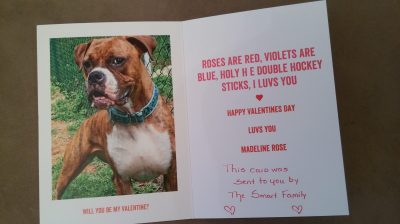 WILL YOU BE MY VALENTINE?
ROSES ARE RED, VIOLETS ARE
BLUE, HOLY H E DOUBLE HOCKEY
STICKS, I LUVS YOU
HAPPY VALENTINES DAY
LUVS YOU
MADELINE ROSE
This card was
sent to you by
The Smart Family